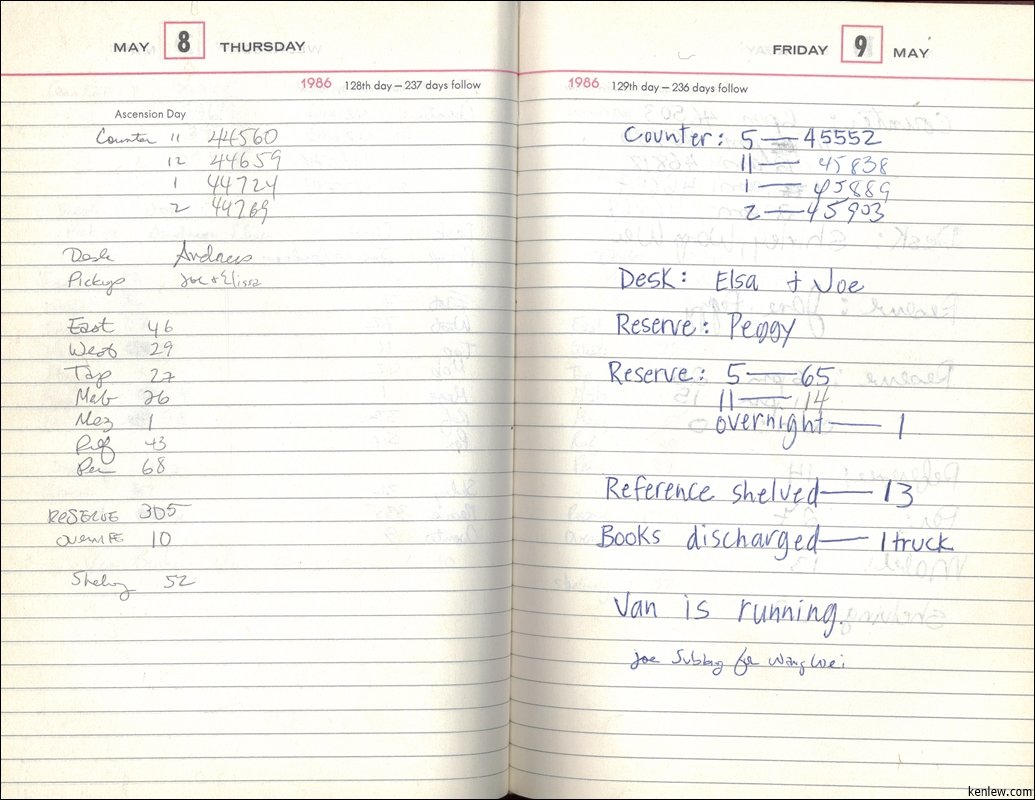 MAY 8 THURSDAY
1986 128th day — 237 days follow
Ascension Day
Counter 11 44560
12 44659
1 44724
2 44769
Desk Andrew
Pickups Joe + Elissa
East 46
West 29
Tap 27
Mab 26
Mez 1
Ref 43
Per 68
RESERVE 305
OVERNITE 10
Shelving 52
FRIDAY 9 MAY
1986 129th day — 236 days follow
Counter: 5 — 45552
11 — 45838
1 — 45889
2 — 45903
Desk: Elsa + Joe
Reserve: Peggy
Reserve: 5 — 65
11 — 14
overnight — 1
Reference shelved — 13
Books discharged — 1 truck
Van is running.
Joe Subbing for Wang Wei
kenlew.com